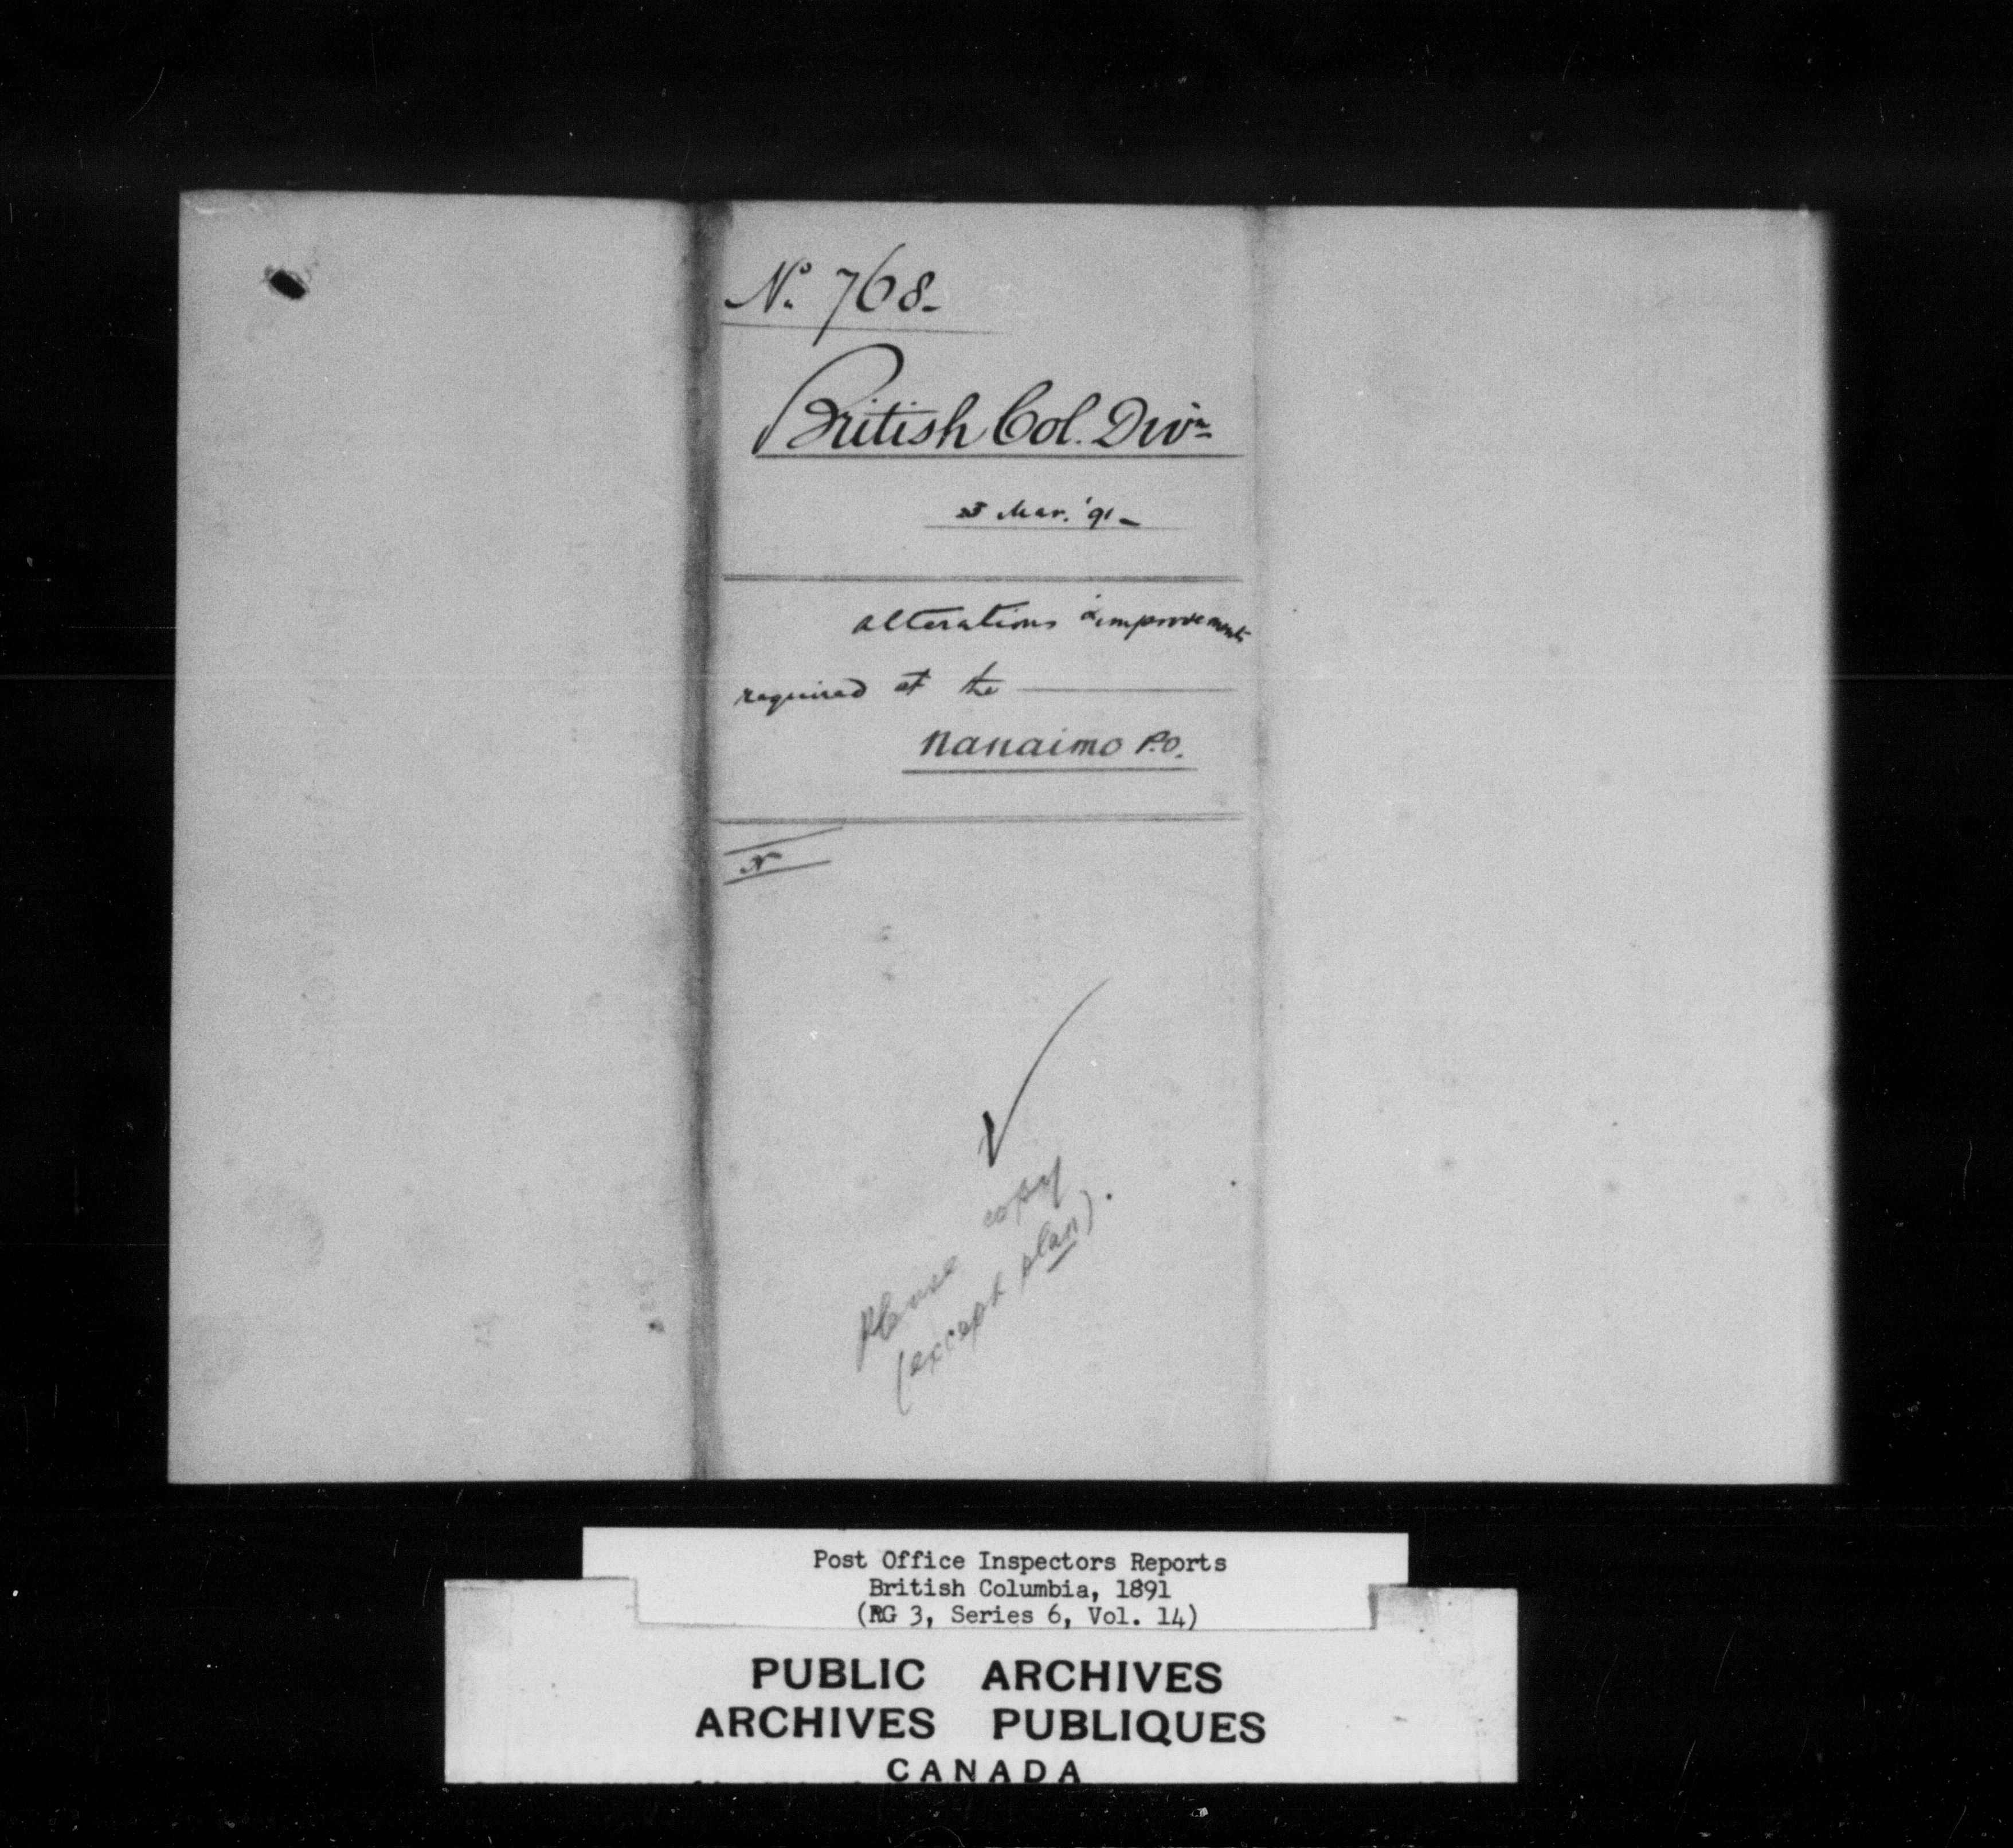 No. 768-
British Col. Divn
3 Mar. '91-
alterations & improvements
required at the
Nanaimo P.O.
N
Please copy
(except plan).
Post Office Inspectors Reports
British Columbia, 1891
(RG 3, Series 6, Vol. 14)
PUBLIC ARCHIVES
ARCHIVES PUBLIQUES
CANADA